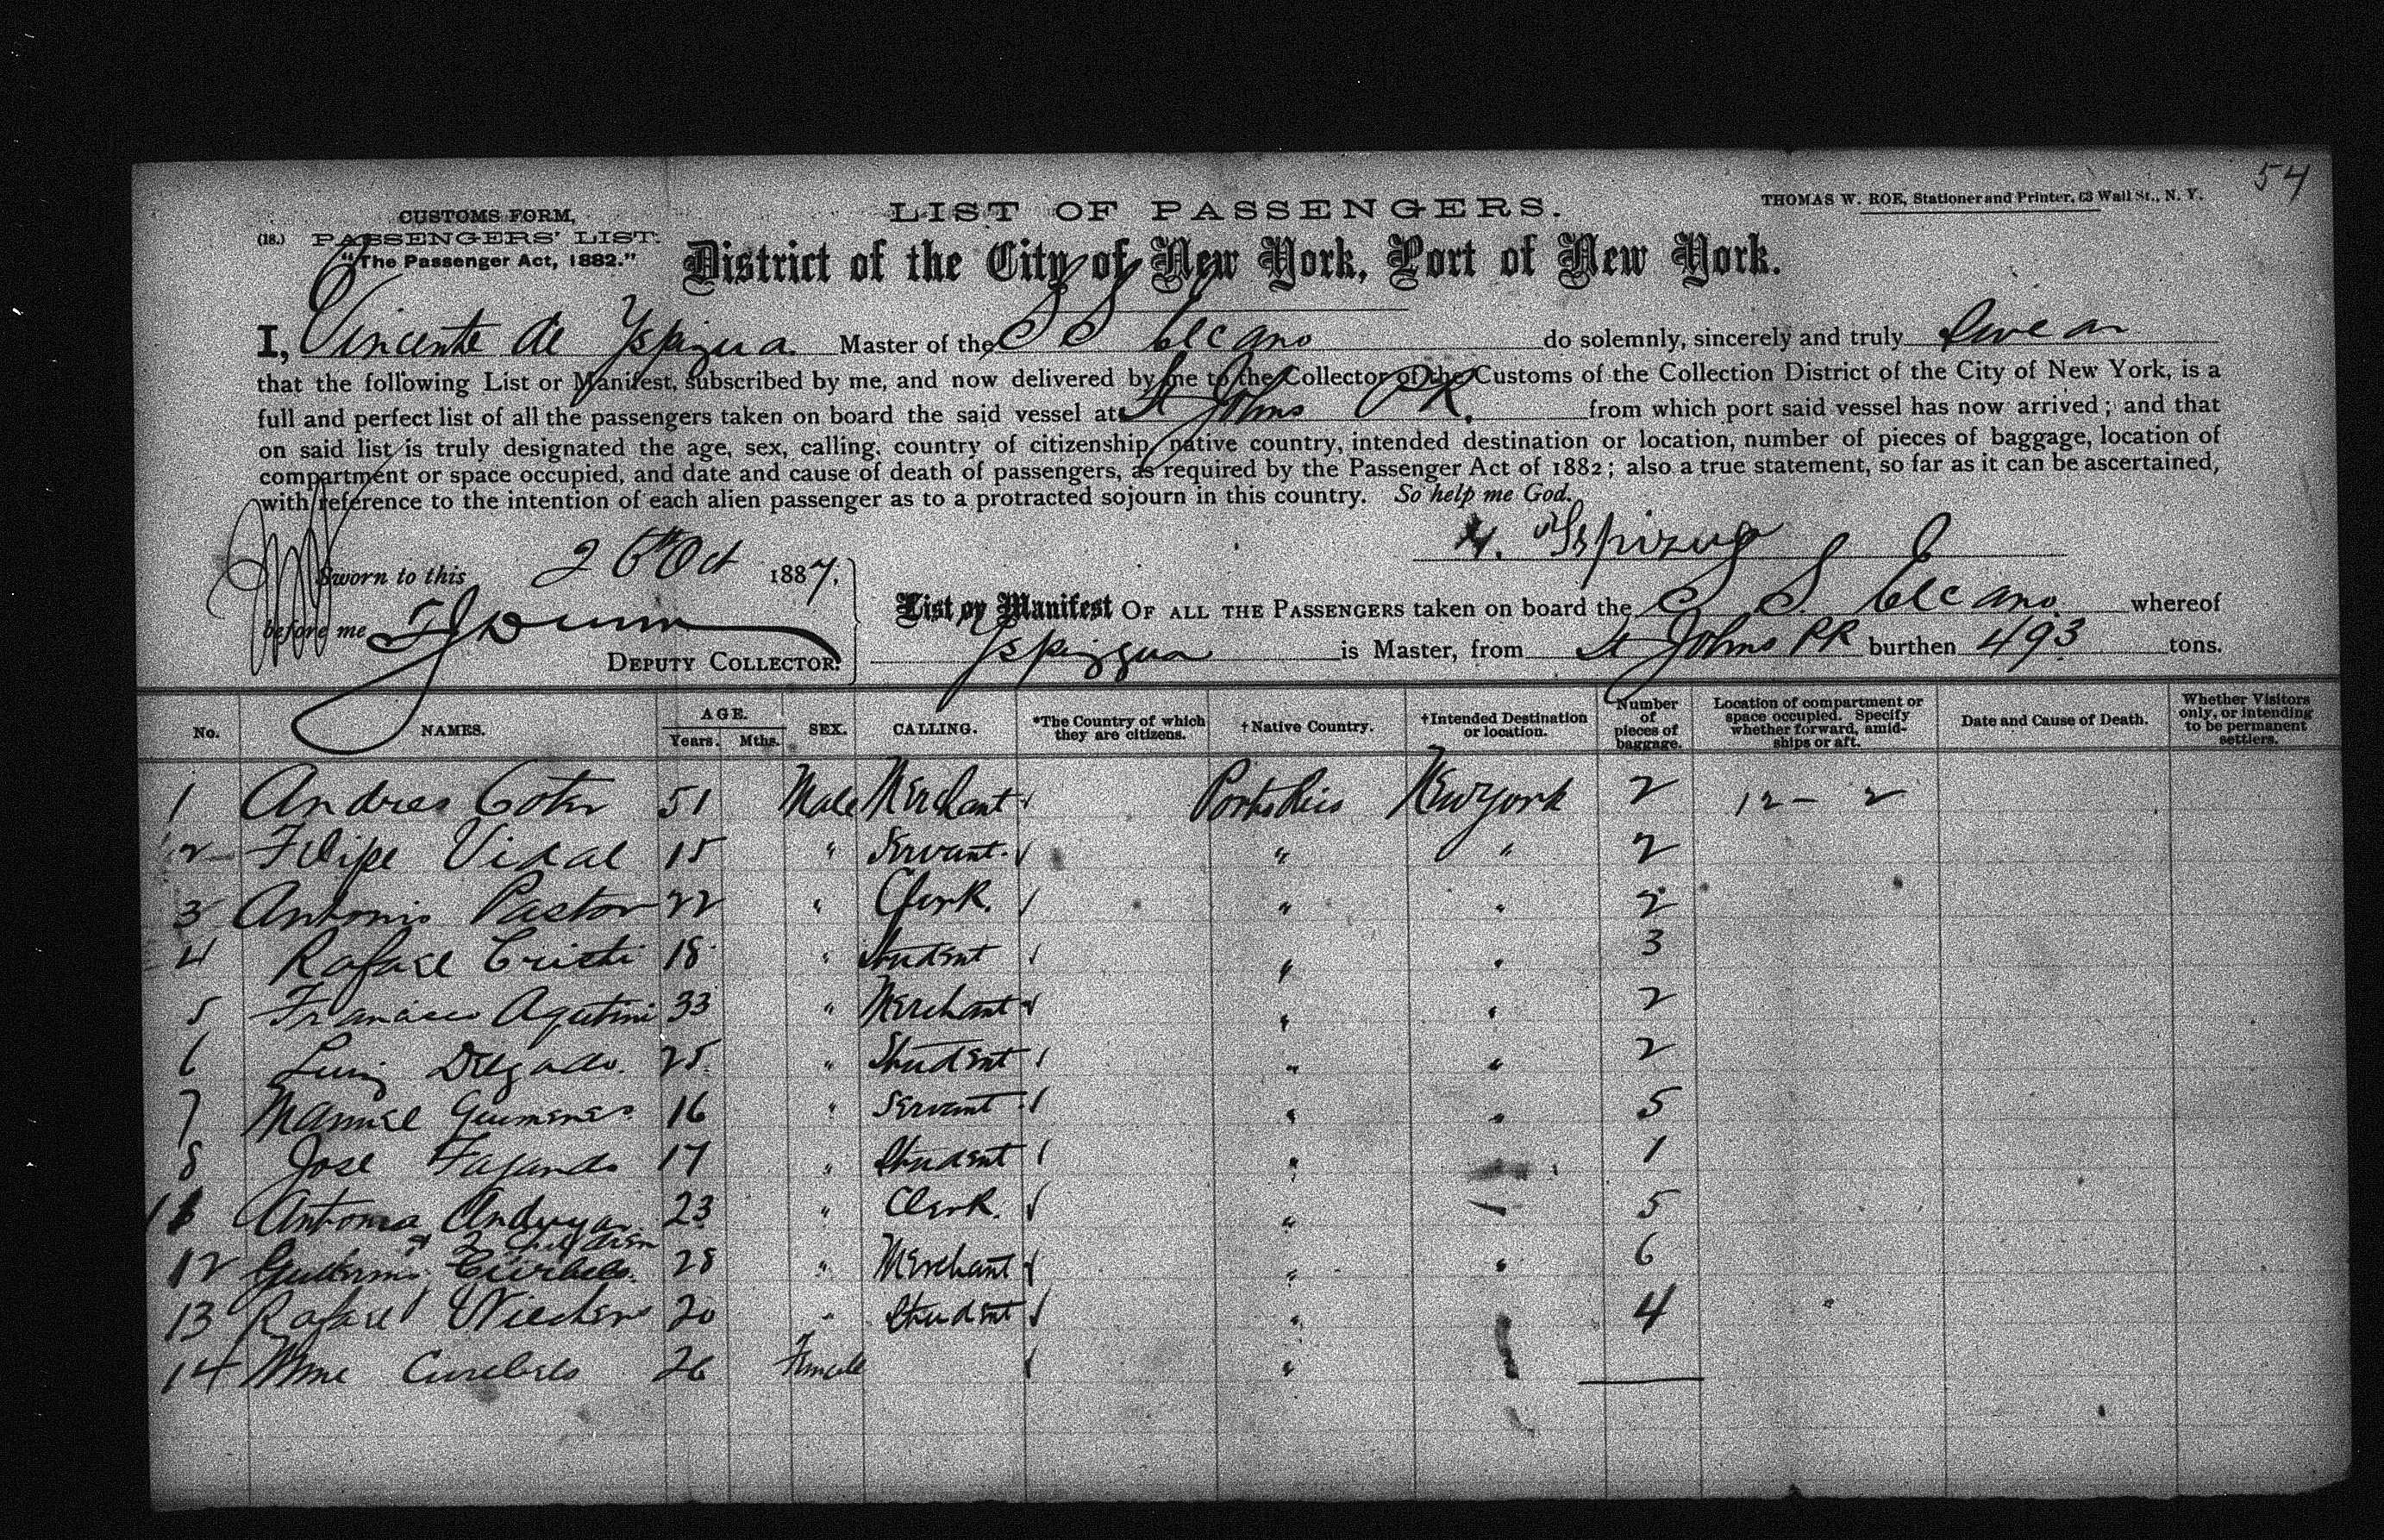 54
CUSTOMS FORM,
(18.) PASSENGERS' LIST.
"The Passenger Act, 1882."
LIST OF PASSENGERS.
THOMAS W. ROE, Stationer and Printer, 63 Wall St., N. Y.
District of the City of New York, Port of New York.
I, Vincente de Yspizua Master of the S S Elcano do solemnly, sincerely and truly Swear
that the following List or Manifest, subscribed by me, and now delivered by me to the Collector of the Customs of the Collection District of the City of New York, is a
full and perfect list of all the passengers taken on board the said vessel at St Johns PR. from which port said vessel has now arrived; and that
on said list is truly designated the age, sex, calling, country of citizenship, native country, intended destination or location, number of pieces of baggage, location of
compartment or space occupied, and date and cause of death of passengers, as required by the Passenger Act of 1882; also a true statement, so far as it can be ascertained,
with reference to the intention of each alien passenger as to a protracted sojourn in this country. So help me God.
V. Yspizua
Sworn to this 26th Oct 1887.
before me
DEPUTY COLLECTOR.
List or Manifest OF ALL THE PASSENGERS taken on board the S S Elcano whereof
Yspizua is Master, from St Johns PR burthen 493 tons.
No. NAMES. AGE. Years. Mths. SEX. CALLING. *The Country of which they are citizens. †Native Country. †Intended Destination or location. Number of pieces of baggage. Location of compartment or space occupied. Specify whether forward, amidships or aft. Date and Cause of Death. Whether Visitors only, or intending to be permanent settlers.
1 Andres 51 Male Merchant Porto Rico New York 2 12 - 2
2 Filipe Vidal 15 " Servant " " 2
3 Antonio Pastor 22 " Clerk. " " 2
4 Rafael 18 " Student " " 3
5 Francisco Agutini 33 " Merchant " " 2
6 Luis Delgado. 25. " Student " " 2
7 Manuel 16 " Servant " " 5
8 Jose Fajardo 17 " Student " " 1
11 Antonia 23 " Clerk. " 5
& 2 children
12 Guillermo 28 " Merchant " " 6
13 Rafael 20 " Student " 4
14 Mme 26 Female "